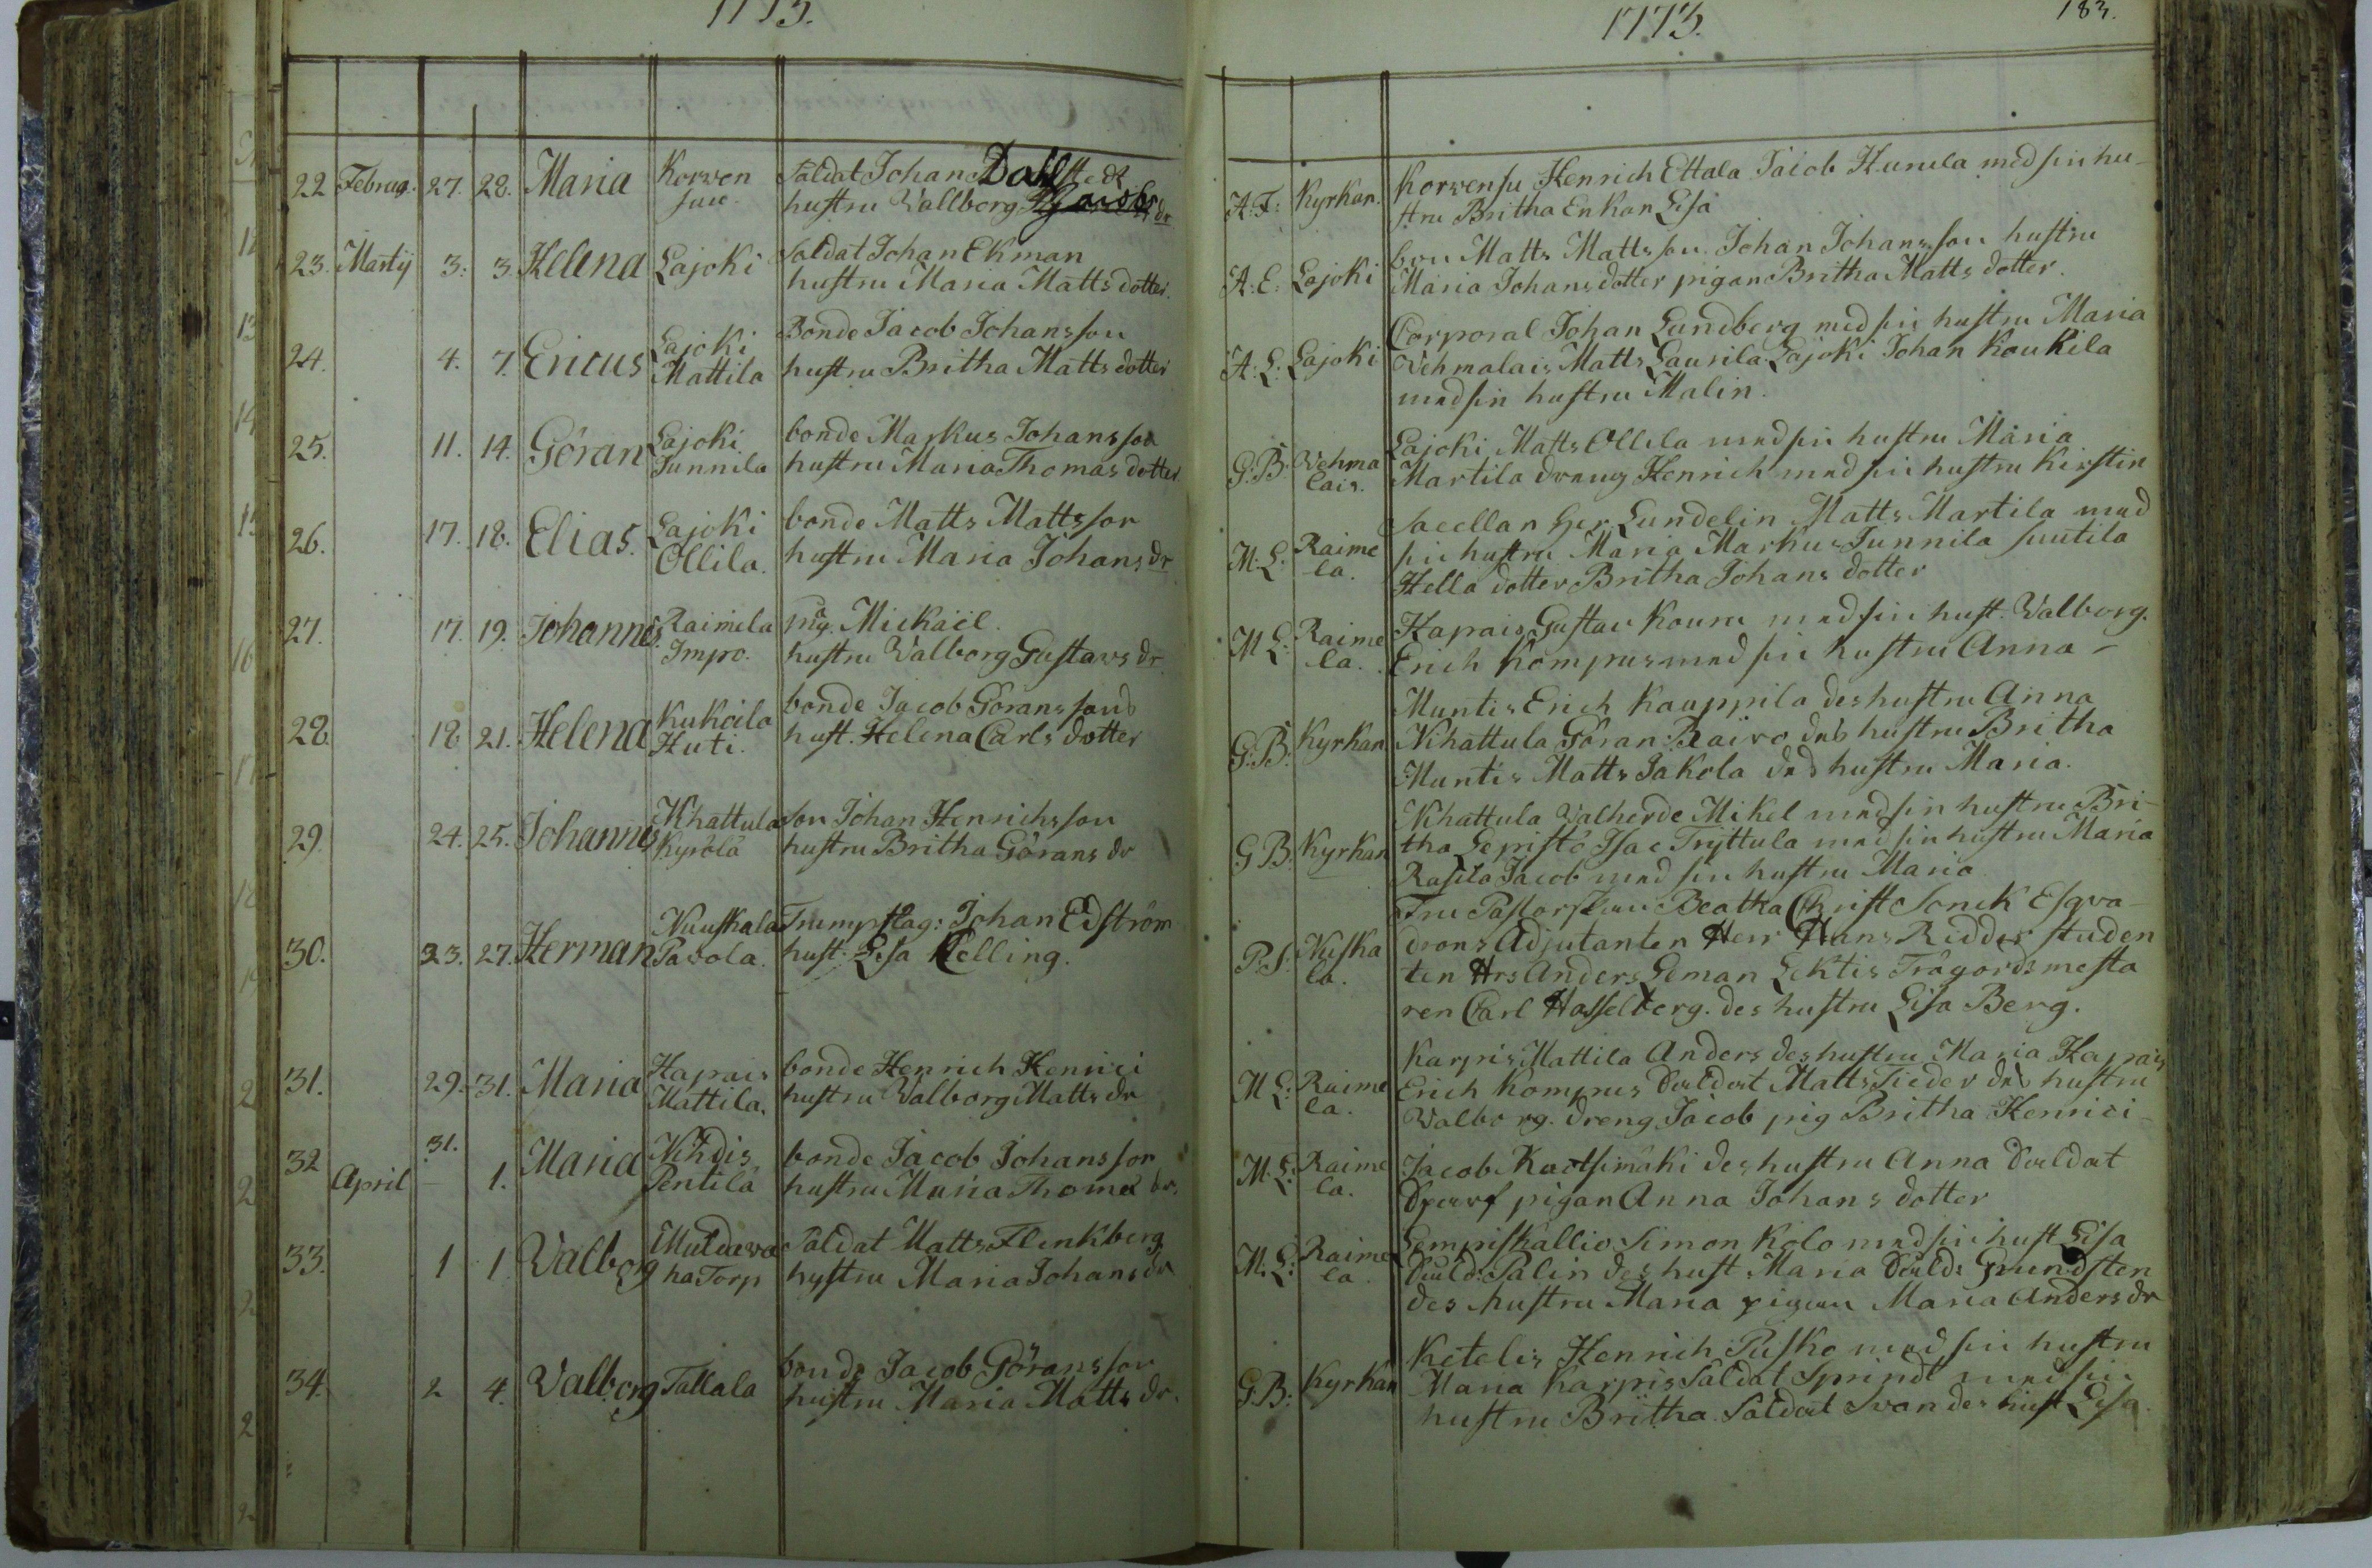 1773.
22 Februa. 27. 28. Maria Korwen Saldat Johan Dahlstedt
suu. hustru Wallborg Jacobs dr
23. Martij 3. 3. Helena Lajoki Soldat Johan Ekman
hustru Maria Matts dotter.
24. 4. 7. Ericus Lajoki Bonde Jacob Johansson
Mattila hustru Britha Matts dotter
25. 11. 14. Göran Lajoki bonde Markus Johansson
Tunnila hustru Maria Thomas dotter
26. 17. 18. Elias. Lajoki bonde Matts Mattsson
Ollila. hustru Maria Johans dr
27. 17. 19. Johannes Raimela Mickael.
Impo. hustru Walborg Gustavs dr
28. 18 21. Helena Kukoila bonde Jacob Göransson
Huti. hust. Helena Carls dotter
29. 24. 25. Johannes Nihattula son Johan Henrichsson
Kyrölä hustru Britha Görans dr
30. 23. 27. Herman Nuuskala Trumpslag: Johan Edström
Pavola. hust. Lisa Kelling.
31. 29. 31. Maria Hapais bonde Henrich Henrici
Mattila. hustru Walborg Matts dr
32 31. Maria Nihdis bonde Jacob Johansson
April 1. Pentilä hustru Maria Thomæ dr.
33. 1 1 Valborg Muldawa Saldat Matts Flinkberg
ha Torp hustru Maria Johans dr
34. 2 4. Valborg Tallala bonde Jacob Göransson
hustru Maria Matts dr.
1773.
183.
A: F: Kyrkan. Korwensu Henrich Ettala Jacob Hunula med sin hu-
stru Britha Enkan Lisa
A: E: Lajoki bou Matts Mattsson Johan Johansson hustru
Maria Johans dotter pigan Britha Matts dotter.
A: L: Lajoki Corporal Johan Lundberg med sin hustru Maria
Vehmalais Matts Laurila Lajoki Johan Koukila
med sin hustru Malin.
G: B: Vehma Lajoki Matts Ollila med sin hustru Maria
lais. Martila dreng Henrich med sin hustru Kirstin
M: L: Raime Sacellan her Lundelin Matts Martila med
la. sin hustru Maria Markus Tunnila suutila
Hella dotter Britha Johans dotter
M L: Raime Hapais Gustav Kouru med sin hust. Valborg.
la. Erich Kompus med sin hustru Anna -
Muntis Erich Kauppila des hustru Anna
G: B: Kyrkan Nihattula Göran Raivo des hustru Britha
Muntis Matts Jakola des hustru Maria.
Nihattula Valherde Mikel med sin hustru Bri-
G B. Kyrkan tha Lepistö Isac Tryttula med sin hustru Maria
Rasila Jacob med sin hustru Maria
Fru Pastorskan Beatha Christ Sonck Esqva-
P: S. Nuska drons Adjutanten Herr Hans Ridder studen
la. ten Hrs Anders Edman Lektis Trägordsmesta
ren Carl Hasselberg. des hustru Lisa Berg.
Karpis Mattila Anders des hustru Maria Hapais
M L: Raime Erich Kompus Saldat Matts Tieder des hustru
la. Walborg. dreng Jacob pig Britha Henrici -
M. L: Raime Jacob Kaitsimäki des hustru Anna Saldat
la. Spurf pigan Anna Johans dotter
M. L: Raime Lempiskallio Simon Kolo med sin hust Lisa
la. Sald: Palin des hust Maria Sald: Grundsten
des hustru Maria pigan Maria Anders dr
Ketelis Henrich Pusko med sin hustru
G. B: Kyrkan Maria Karpis Saldat Sprindt med sin
hustru Britha. Saldat Svan des hust Lisa.